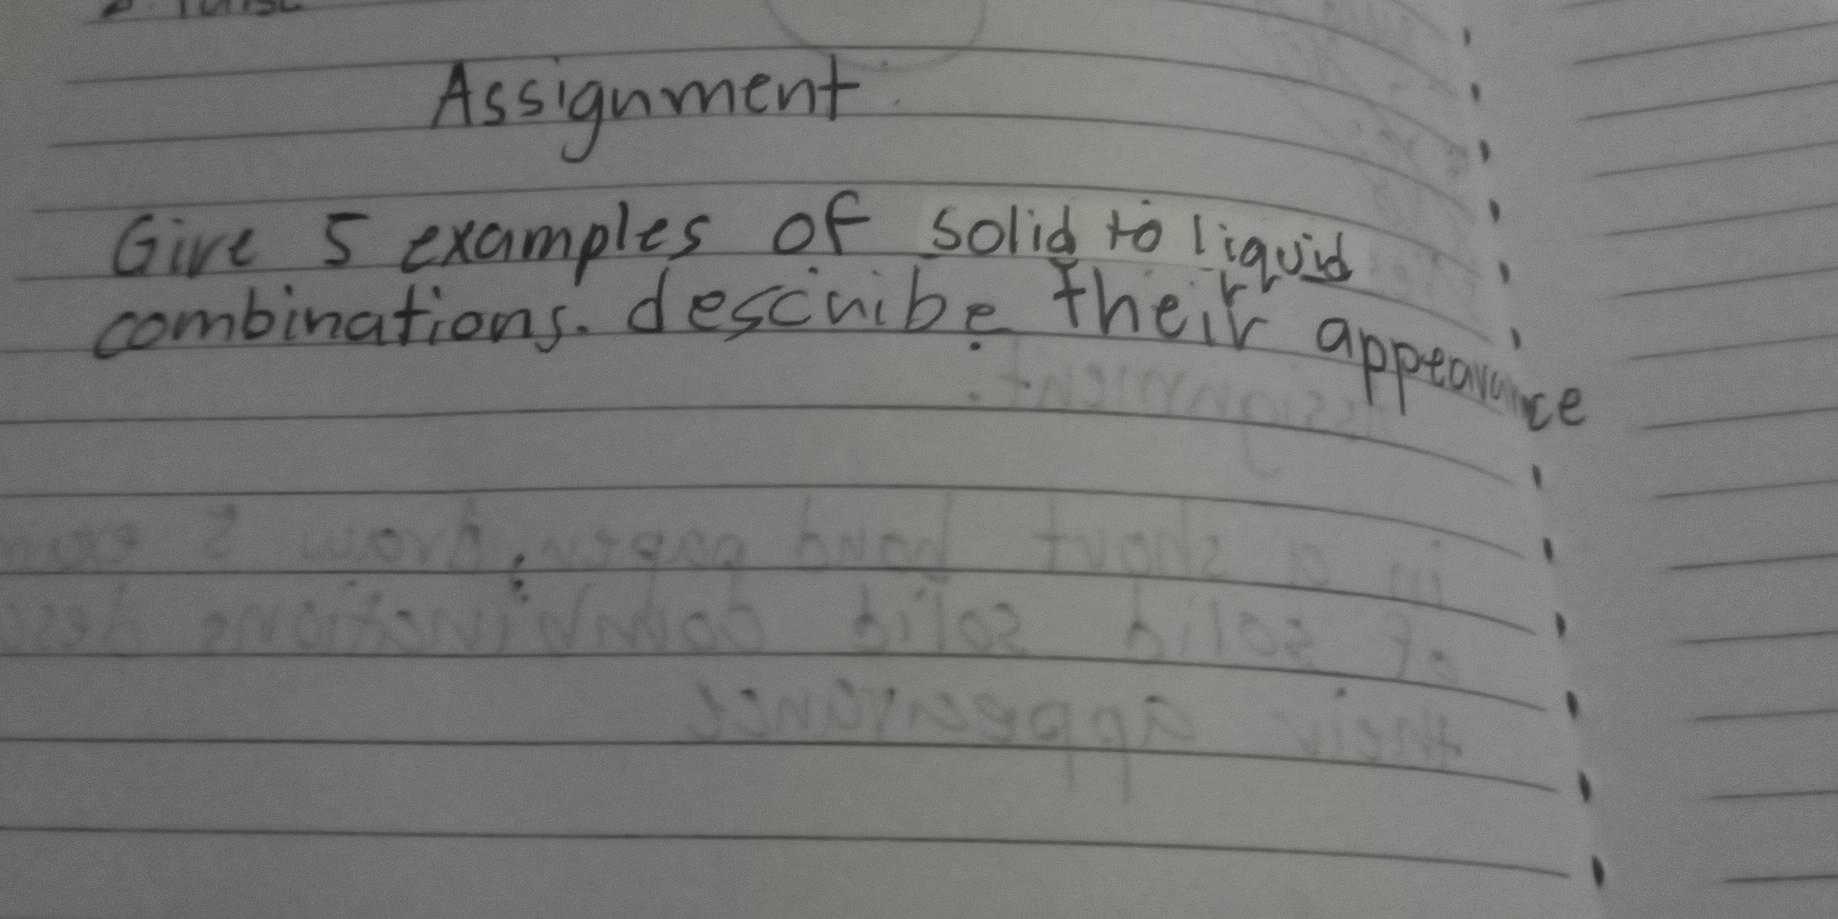 Assignment.
Give 5 examples of solid to liquid
combinations. describe their appearance